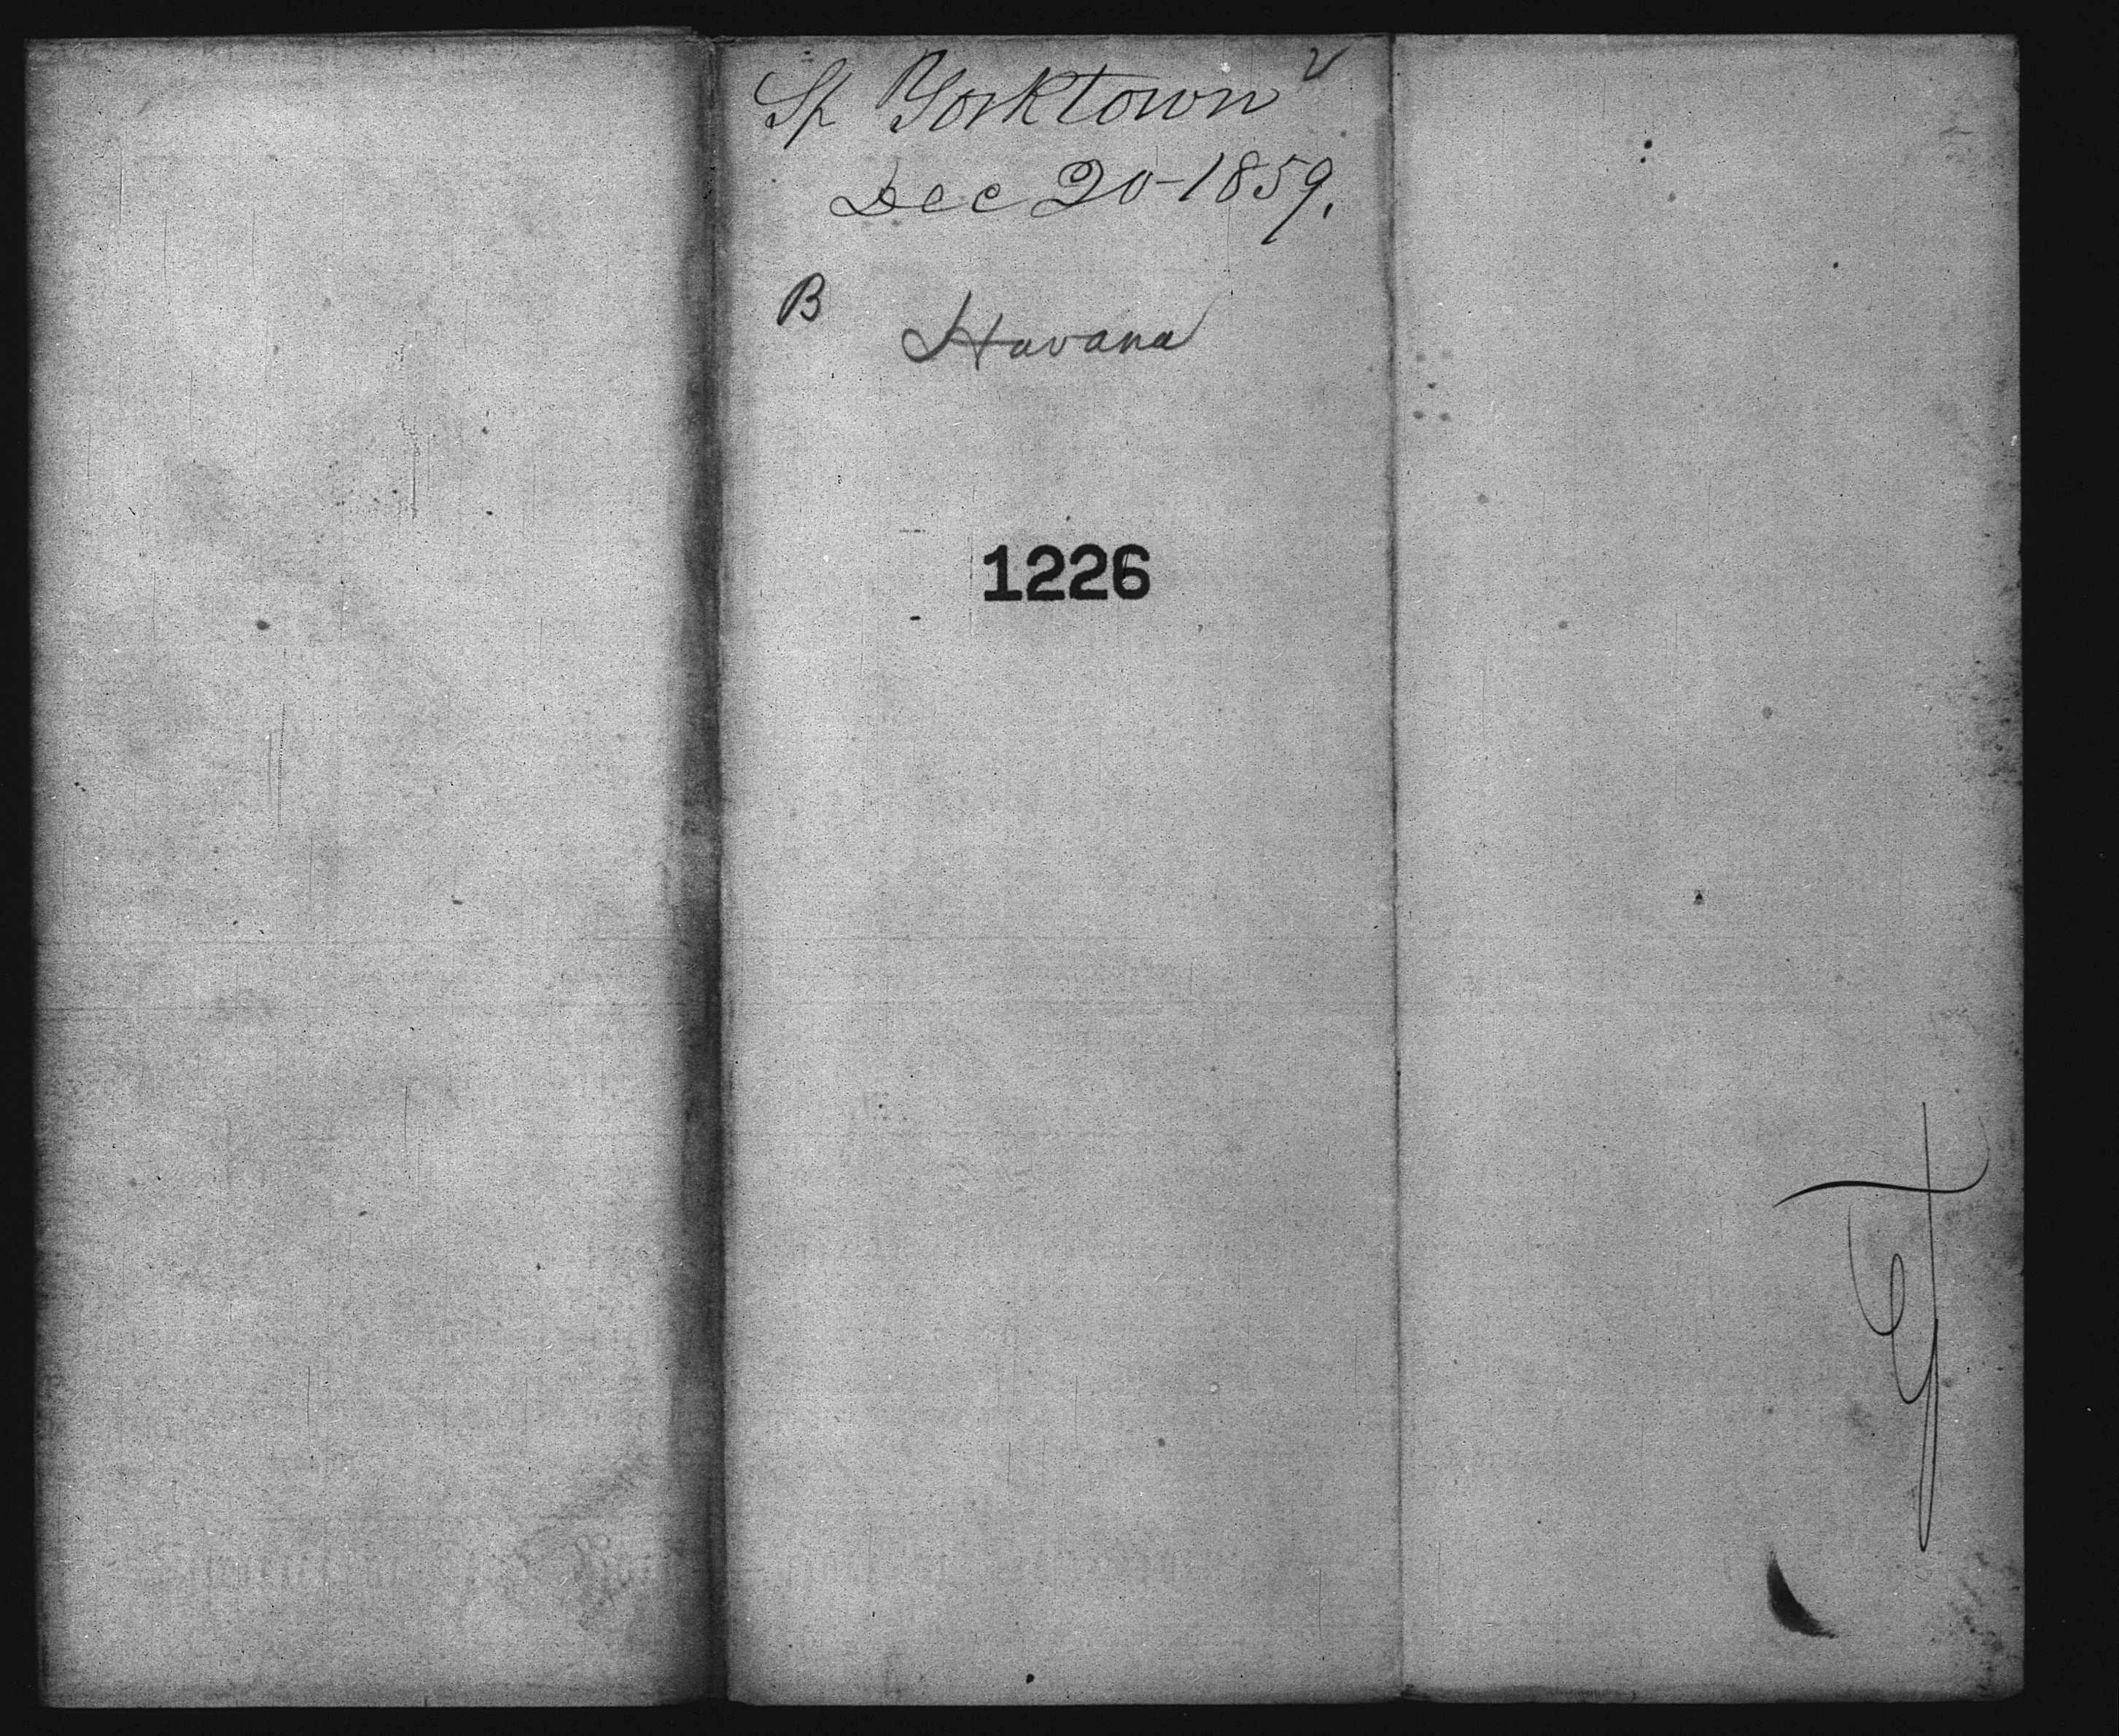 Sh Yorktown
Dec 20-1859.
B
Havana
1226